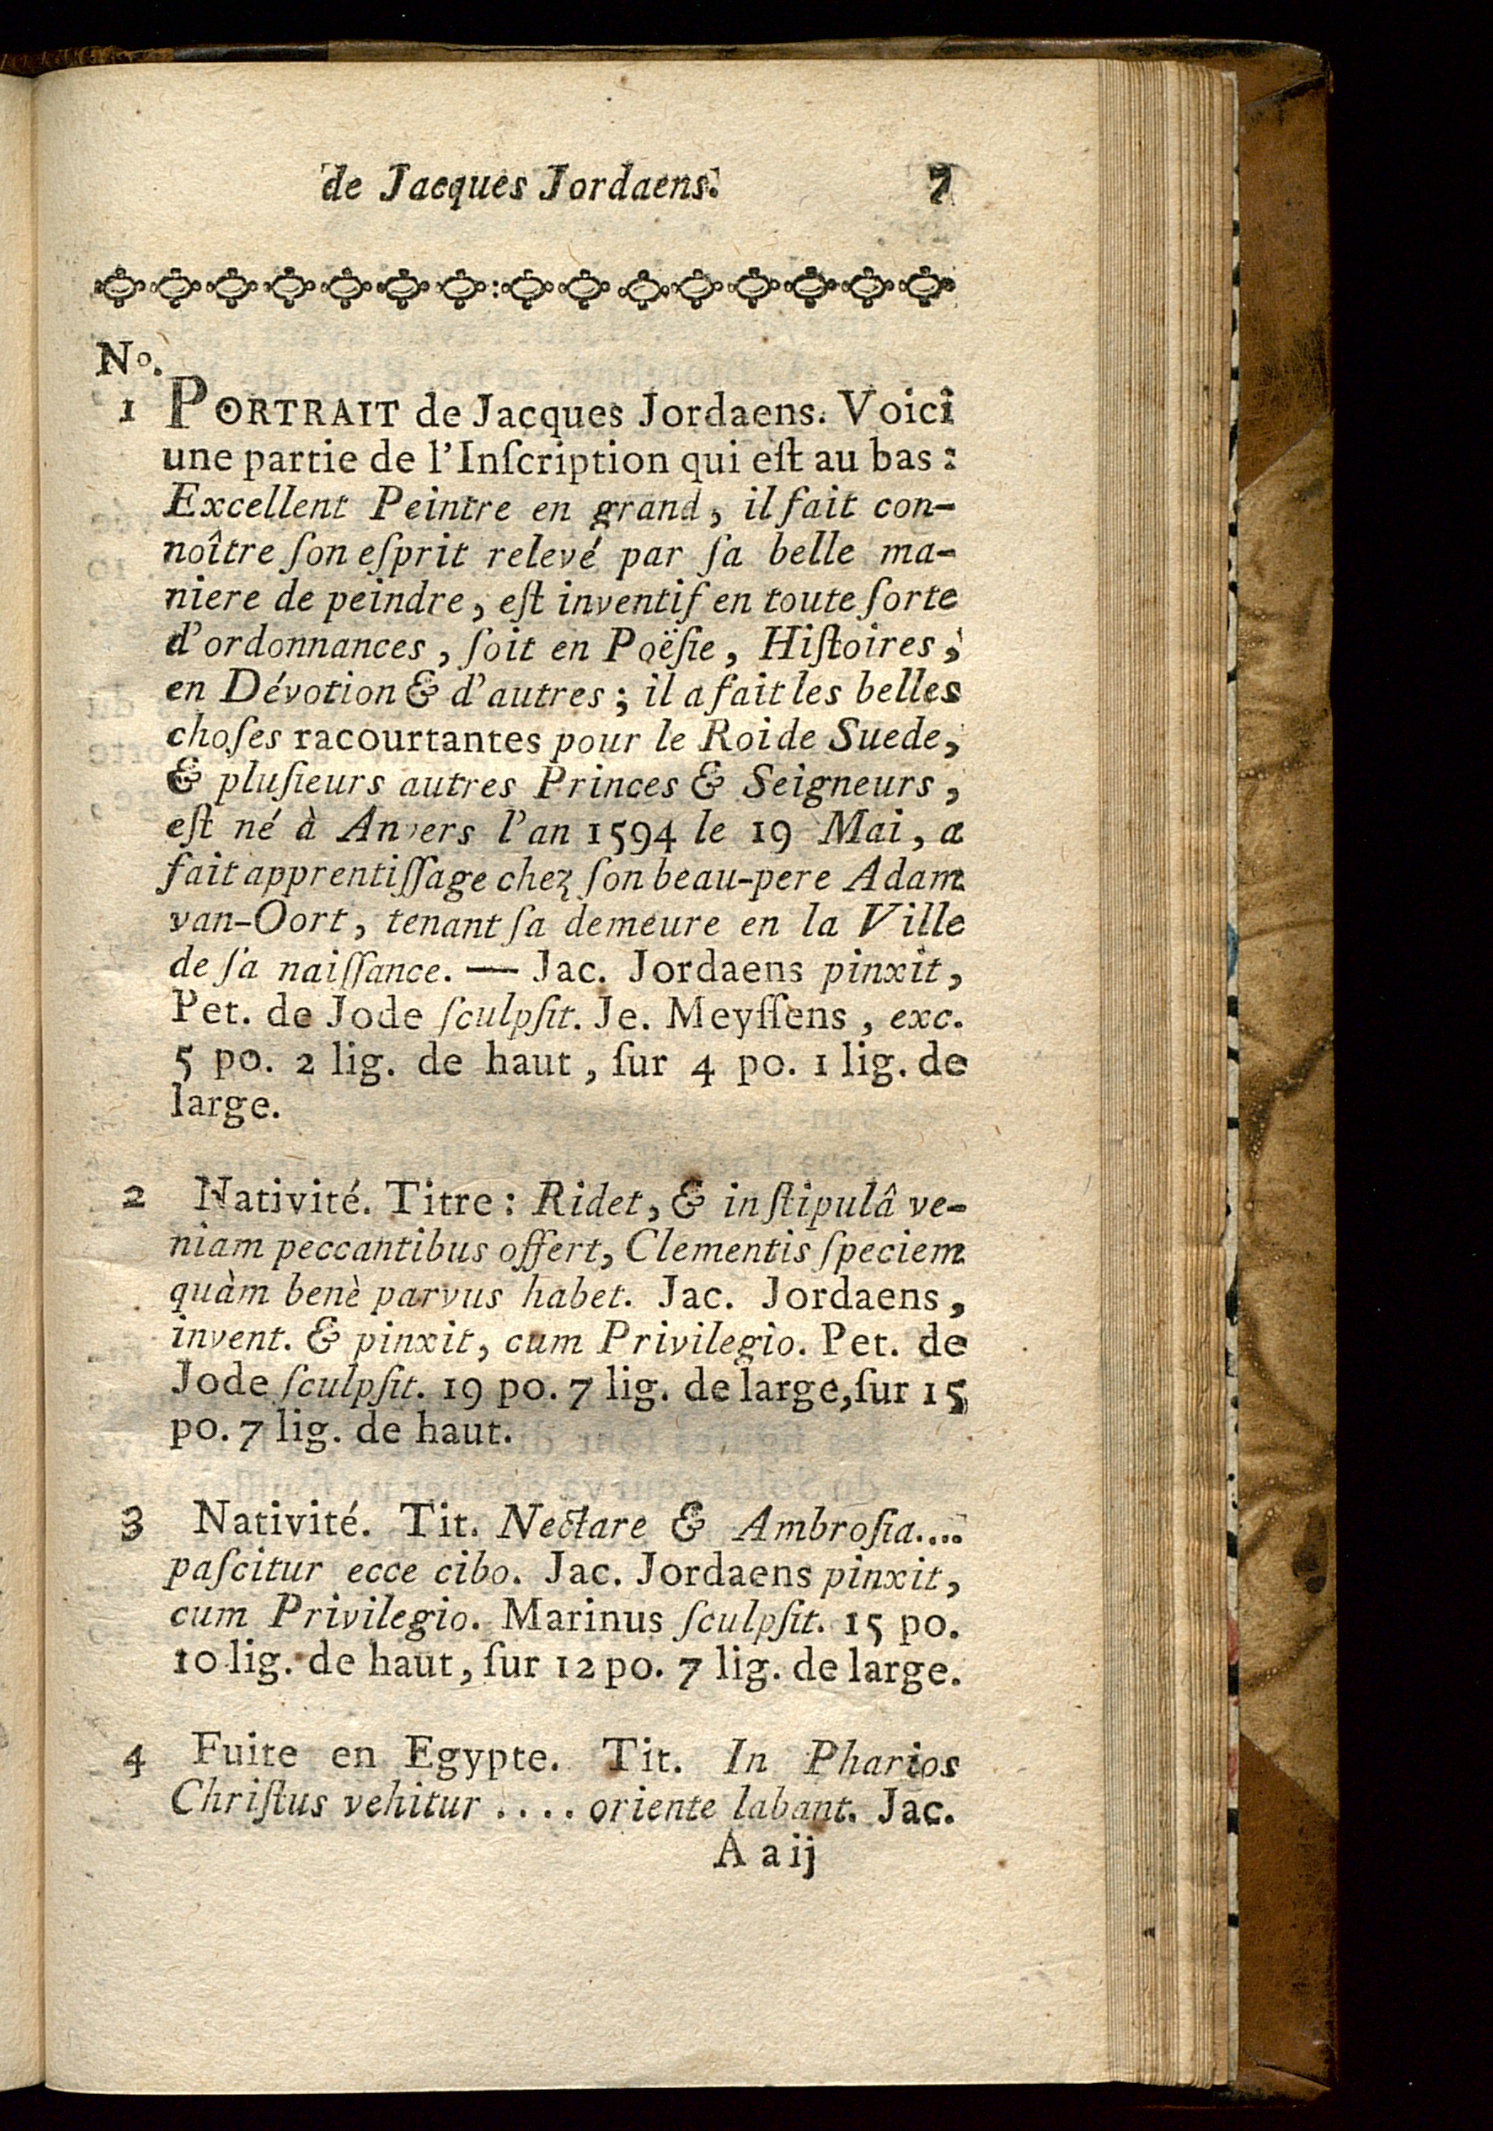 de Jacques Jordaens. 7
No.
1 PORTRAIT de Jacques Jordaens. Voici
une partie de l'Inſcription qui eſt au bas :
Excellent Peintre en grand, il fait con-
noître ſon eſprit relevé par ſa belle ma-
niere de peindre, eſt inventif en toute ſorte
d'ordonnances, ſoit en Poëſie, Hiſtoires,
en Dévotion & d'autres ; il a fait les belles
choſes racourtantes pour le Roi de Suede,
& pluſieurs autres Princes & Seigneurs,
eſt né à Anvers l'an 1594 le 19 Mai, a
fait apprentiſſage chez ſon beau-pere Adam
van-Oort, tenant ſa demeure en la Ville
de ſa naiſſance. — Jac. Jordaens pinxit,
Pet. de Jode ſculpſit. Je. Meyſſens, exc.
5 po. 2 lig. de haut, ſur 4 po. 1 lig. de
large.
2 Nativité. Titre : Ridet, & in ſtipulâ ve-
niam peccantibus offert, Clementis ſpeciem
quàm benè parvus habet. Jac. Jordaens,
invent. & pinxit, cum Privilegio. Pet. de
Jode ſculpſit. 19 po. 7 lig. de large, ſur 15
po. 7 lig. de haut.
3 Nativité. Tit. Nectare & Ambroſia....
paſcitur ecce cibo. Jac. Jordaens pinxit,
cum Privilegio. Marinus ſculpſit. 15 po.
10 lig. de haut, ſur 12 po. 7 lig. de large.
4 Fuite en Egypte. Tit. In Pharios
Chriſtus vehitur .... oriente labant. Jac.
A a ij